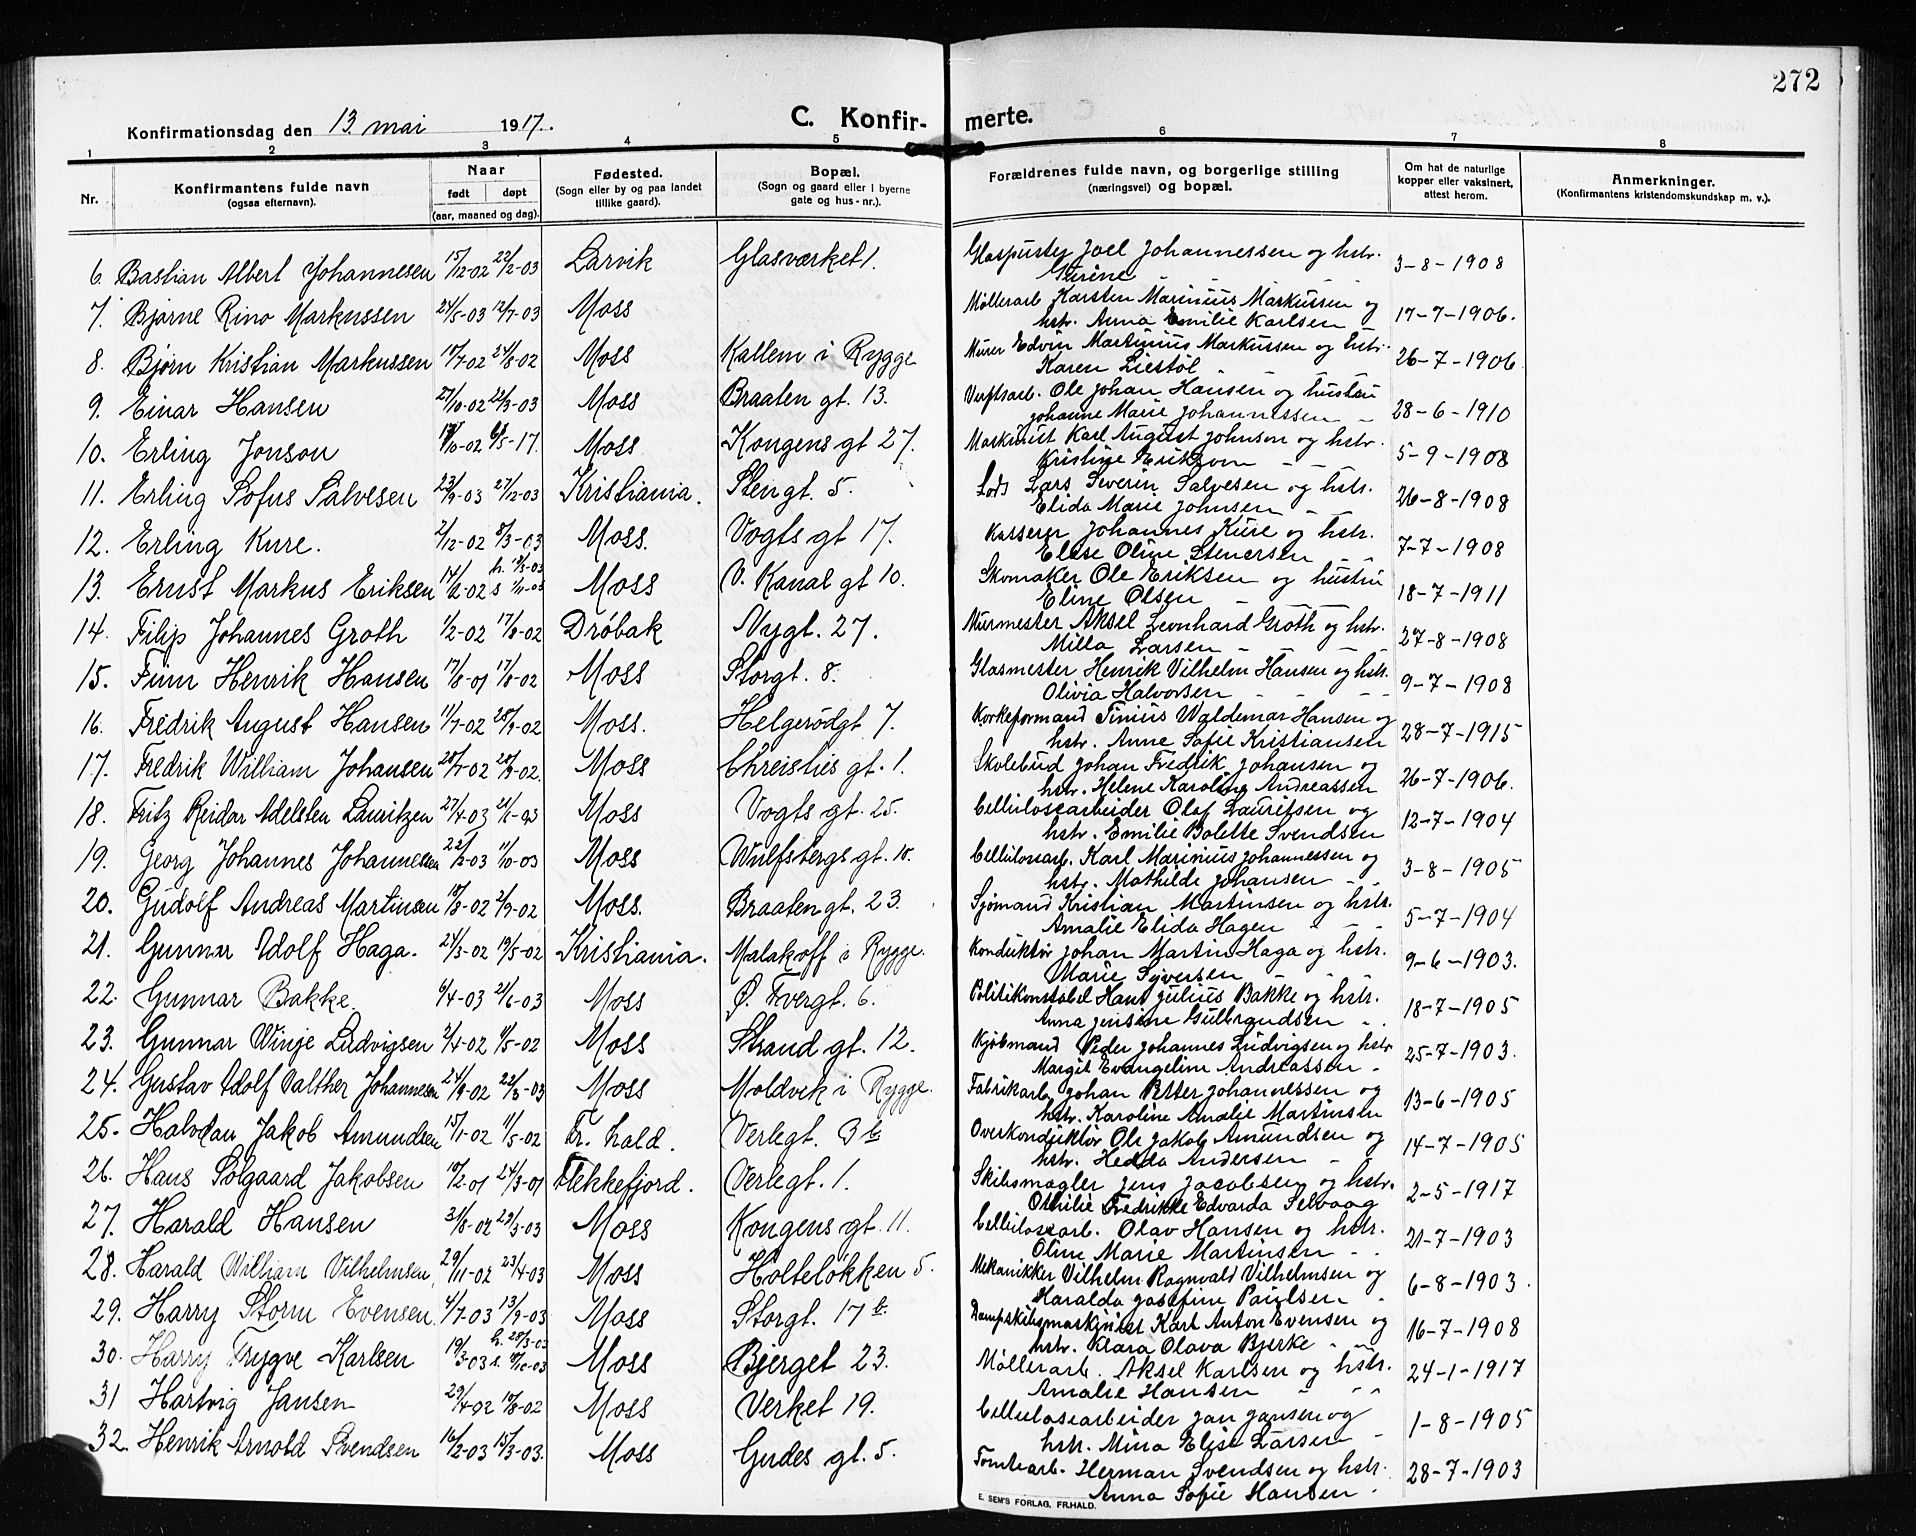 272
Konfirmationsdag den 13 mai 1917.
C. Konfir- merte.
1 2 3 4 5 6 7 8
Nr.
Konfirmantens fulde navn
(ogsaa efternavn).
Naar
født døpt
(aar, maaned og dag).
Fødested.
(Sogn eller by og paa landet
tillike gaard).
Bopæl.
(Sogn og gaard eller i byerne
gate og hus-nr.).
Forældrenes fulde navn, og borgerlige stilling
(næringsvei) og bopæl.
Om hat de naturlige
kopper eller vaksinert,
attest herom.
Anmerkninger.
(Konfirmantens kristendomskundskap m. v.).
6. Bastian Albert Johannesen 15/12-02 22/2-03 Larvik Glasværket 1. Glaspuster Joel Johannessen og hstr. 3-8-1908
Gurine
7. Bjarne Rino Markussen 24/5-03 12/7-03 Moss Møllerarb. Karsten Marinius Markussen og 17-7-1906.
hstr. Anna Emilie Karlsen
8. Bjørn Kristian Markussen 17/7-02 24/8-02 Moss Kallem i Rygge Murer Edvin Martinius Markussen og hstr. 26-7-1906
Karen Liestøl
9. Einar Hansen 27/10-02 22/3-03 Moss Braaten gt. 13. Verftsarb. Ole Johan Hansen og hustru 28-6-1910
Johanne Marie Johannessen
10. Erling Jonson /10-02 6/5-17. Moss Kongens gt 27. Maskinist Karl August Johnson og hstr. 5-9-1908
Kristine Erikson
11. Erling Sofus Salvesen 23/9-03 27/12-03 Kristiania. Stengt. 5. Lods Lars Severin Salvesen og hstr. 26-8-1908
Elida Marie Johnsen
12. Erling Kure. 2/12-02 8/3-03 Moss. Vogts gt 17. Kasserer Johannes Kure og hstr. 7-7-1908
Elise Oline Stenersen
13. Ernst Markus Eriksen Moss V. Kanal gt 10. Skomaker Ole Eriksen og hustru 18-7-1911
Eline Olsen
14. Filip Johannes Groth 1/2-02 17/8-02 Drøbak Nygt. 27. Murmester Aksel Leonhard Groth og hstr. 27-8-1908
Milla Larsen
15. Finn Henrik Hansen 17/8-01 17/8-02 Moss Storgt. 8. Glasmester Henrik Vilhelm Hansen og hstr. 9-7-1908
Olivia Halvorsen
16. Fredrik August Hansen 11/7-02 28/9-02 Moss. Helgerødgt 7. Korkeformand Tinius Waldemar Hansen og 28-7-1915
hstr. Anne Sofie Kristiansen
17. Fredrik William Johansen 20/7-02 Moss Chreisties gt. 1. Skolebud Johan Fredrik Johansen og 26-7-1906.
hstr. Helene Karoline Andreassen
18. Fritz Reidar Adelsten Lauritzen 27/4-03 Moss Vogts gt. 25. Celluloscarbeider Olaf Lauritsen og 12-7-1904
hstr. Emilie Bolette Svendsen
19. Georg Johannes Johannesen 11/10-03 Moss Wulfsbergs gt. 10. Cellulosearb. Karl Marinius Johannessen og 3-8-1905
hstr. Mathilde Johansen
20. Gudolf Andreas Martinsen 18/8-02 2/9-02 Moss. Braaten gt. 23. Sjømand Kristian Martinsen og hstr. 5-7-1904
Amalie Elida Hagen
21. Gunnar Adolf Haga. 24/3-02 19/5-02 Kristiania. Malakoff i Rygge. Konduktør Johan Martin Haga og hstr. 9-6-1903.
Marie Syversen
22. Gunnar Bakke. 6/4-03 21/6-03 Moss Ø. Tvergt. 6. Politikonstabel Hans Julius Bakke og hstr. 18-7-1905
Anna Jensine Gulbrandsen
23. Gunnar Winje Ludvigsen 2/4-02 Moss Strand gt. 12. Kjøbmand Peder Johannes Ludvigsen og hstr 25-7-1903.
Margit Evangeline Andreassen
24. Gustav Adolf Valther Johannesen 24/9-02 22/3-03 Moss Moldvek i Rygge. Fabrikarb. Johan Petter Johannessen og 13-6-1905
hstr. Karoline Amalie Martinsen
25. Halvdan Jakob Amundsen 15/1-02 11/5-02 Fr. hald. Verlegt. 3b Overkonduktør Ole Jakob Amundsen og 14-7-1905
hstr. Hedda Andersen
26. Hans Solgaard Jakobsen 10/2-01 24/3-01 Flekkefjord. Verlegt. 1. Skibsmægler Jens Jacobsen og hstr. 2-5-1917
Othilie Fredrikke Edvarda Selvaag
27. Harald Hansen 31/8-02 29/3-03 Moss Kongens gt. 11. Cellulosearb. Olav Hansen og hstr. 21-7-1903
Oline Marie Martinsen
28. Harald William Vilhelmsen, 29/11-02 23/4-03 Moss Holteløkken 5. Mekanikker Vilhelm Ragnvald Vilhelmsen og 6-8-1903.
Haralda Josefine Paulsen
29. Harry Storm Evensen. 4/7-03 13/9-03 Moss Storgt. 17 b. Dampskibsmaskinist Karl Anton Evensen og 16-7-1908
hstr. Klara Olava Bjerke
30. Harry Trygve Karlsen 19/3-03 Moss Bjerget 23. Møllerarb. Aksel Karlsen og hstr. 24-1-1917
Amalie Hansen
31 Hartvig Jansen 29/4-02 10/8-02 Moss Verket 19. Cellulosearbeider Jan Jansen og 1-8-1905
hstr. Mina Elise Larsen
32. Henrik Arnold Svendsen 16/2-03 15/3-03. Moss Gudes gt. 5. Tomtearb. Herman Svendsen og hstr. 28-7-1903
Anna Sofie Hansen
E. SEM'S FORLAG, FR.HALD.